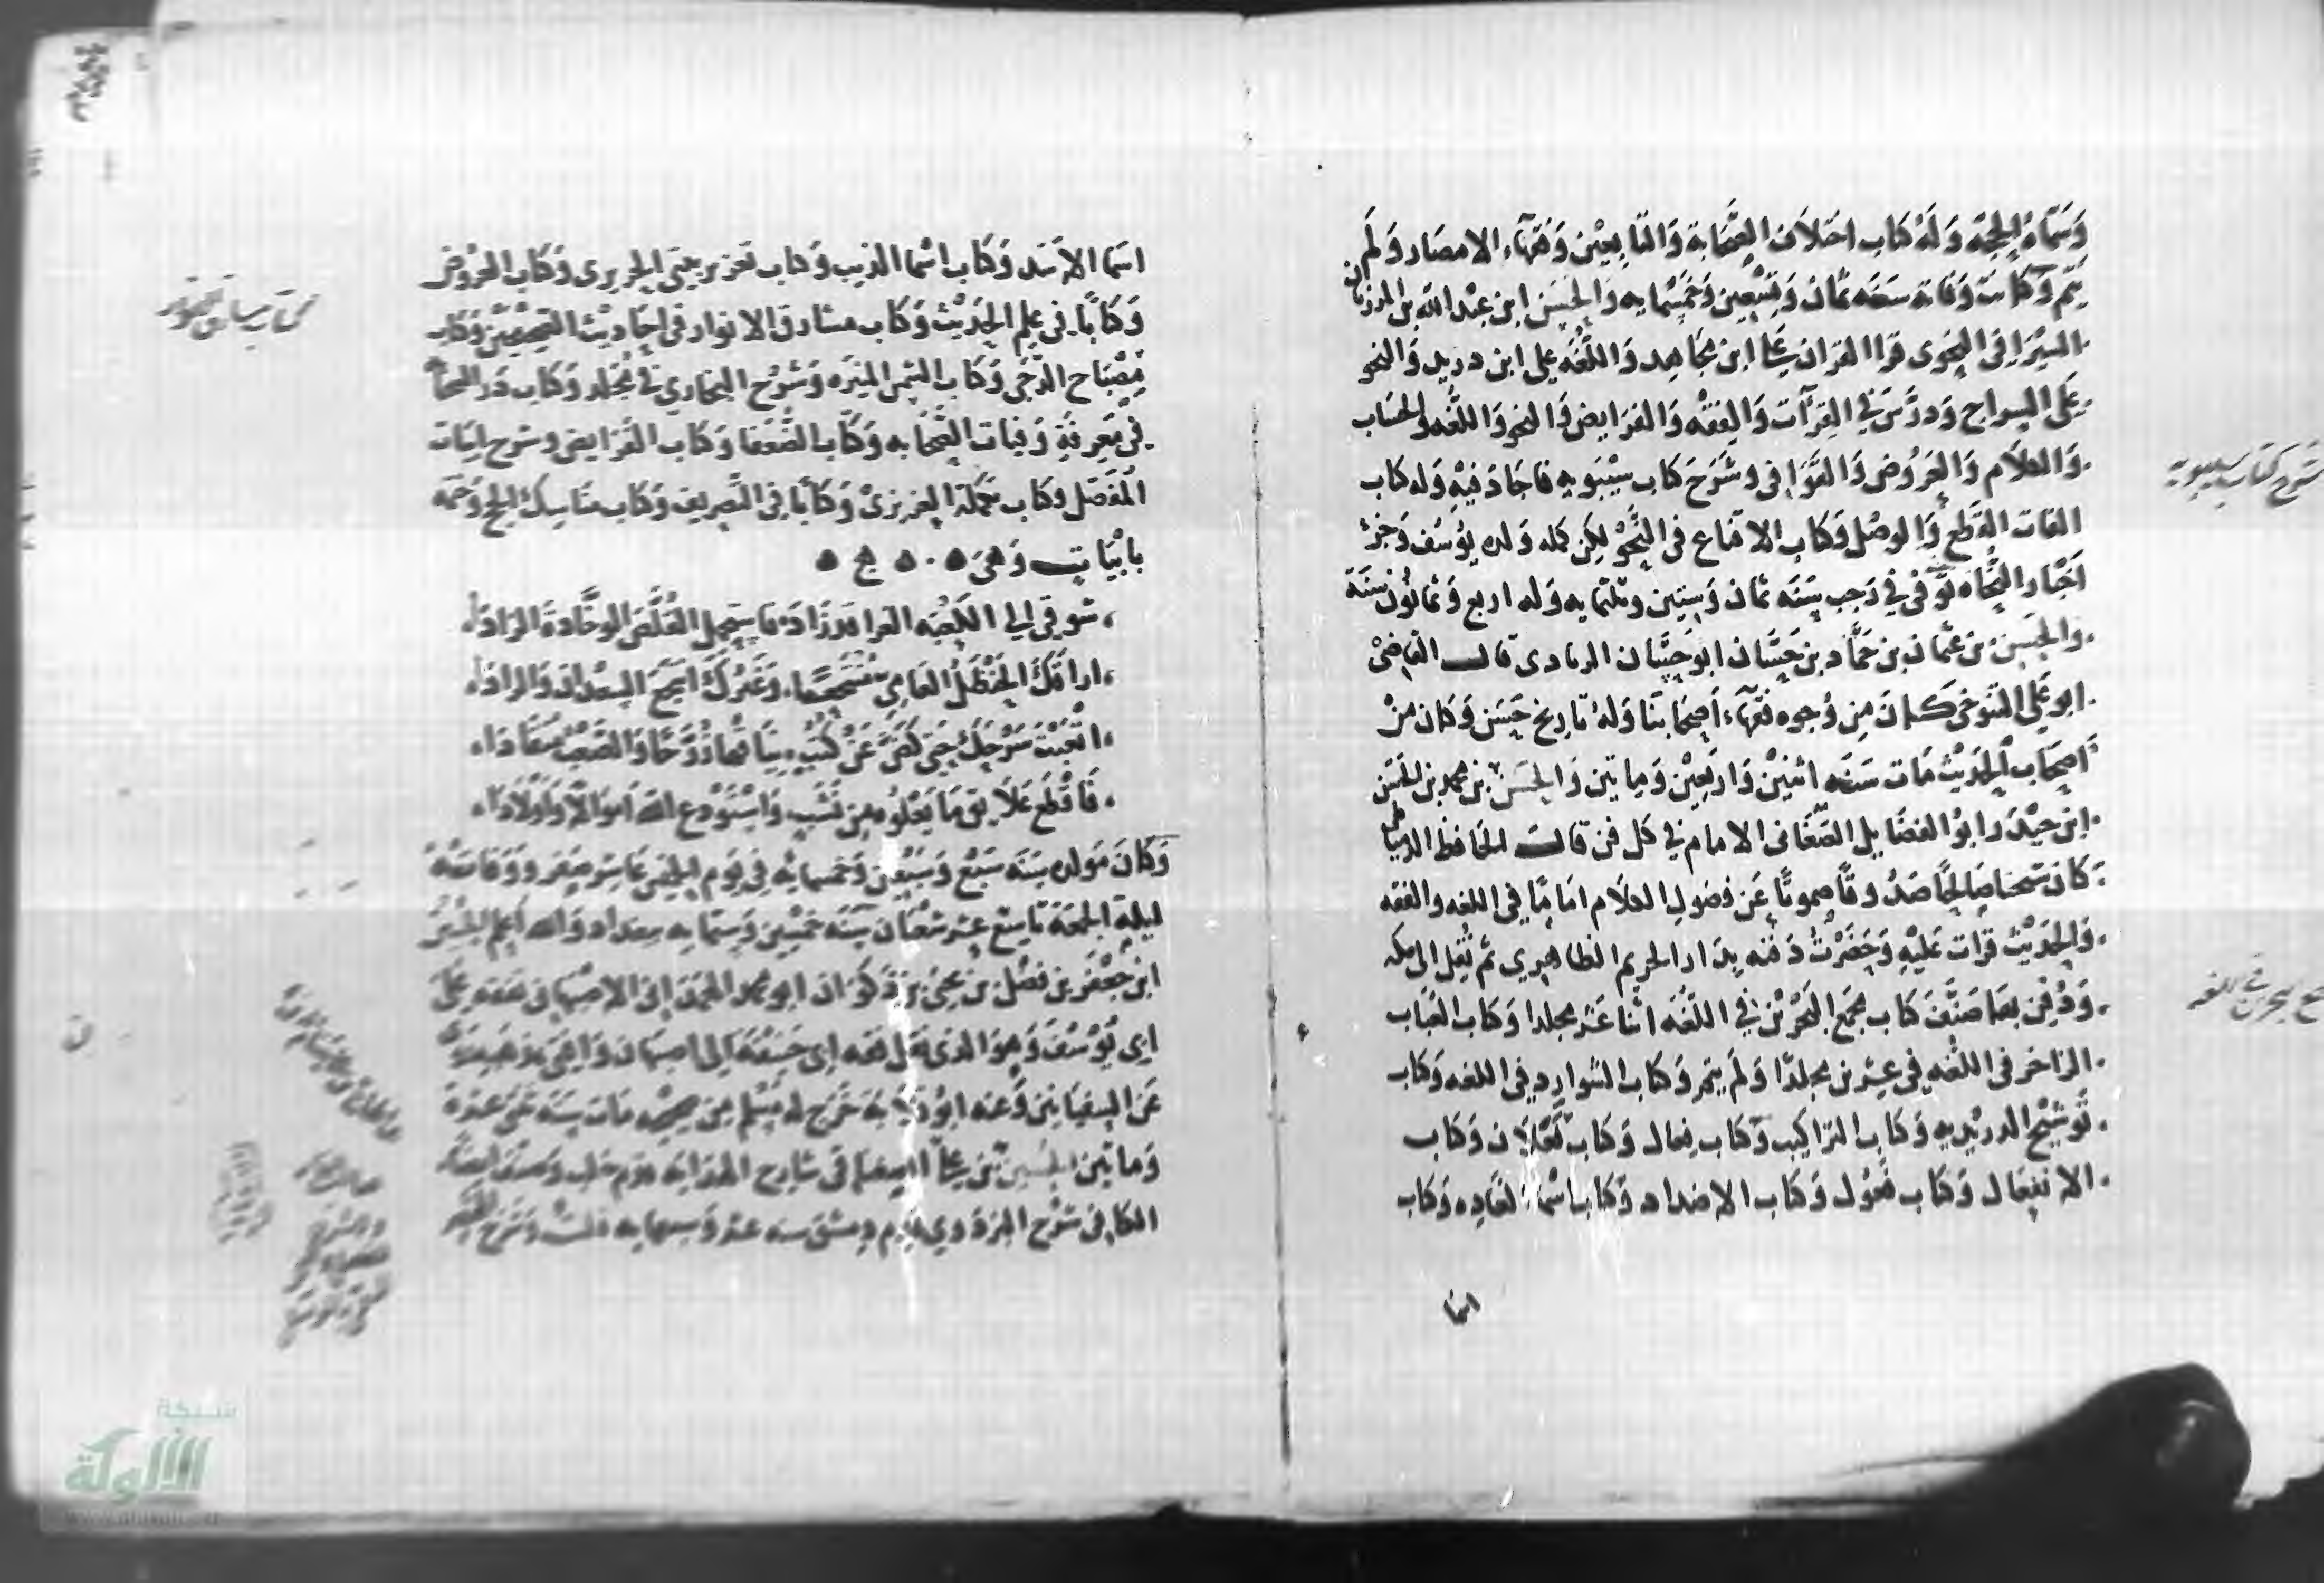 وَسَمَّاهُ الحجه وَلَهُ كتاب اختلاف الصَّحَابة وَالتابِعيْن وَفقهَاء الامصَار وَلَم
يتم وَكانت وَفاته سَنَه ثمان وَتسْعين وَخمسْمايه وَالحسَن ابن عبْد الله بن المرزبان
السيْرَافى النحوى قرا القران على ابن مجاهد وَاللغُه على ابن دريد وَالنحو
عَلى السراج وَدرَّسَ فى القرآت وَالفقْه وَالفرَايض وَالنحو وَاللغُه والحسَاب
وَالكلام وَالعَرُوض وَالقوَافى وشَرَحَ كتاب سيْبَويه فاجَادَ فيْهِ وَله كتاب
الفات القطع وَالوصْل وَكتاب الاقناع فى النَّحوْ لكن كمله وَلده يوُسُف وَجزءُ
اخْبَار النُّحَاه توَّفى فى رَجب سَنَه ثمان وَستين وثلثمايه وَله اربع وَثمانوُن سَنَة
والحسَن بن عثمان بن حَمَّاد بن حَسَّان ابو حَسَّان الزيادى قالـــ القاضىْ
ابو عَلى التنوخى كـان مِن وُجوه فقهَاء اَصحَابنَا وَلهُ تاريخ حَسَن وَكان منْ
اَصحَاب الحديْث مَات سَنَه اثنيْن وَاربَعيْن وَمايتين وَالحسَن بن محمد بن الحسَن
ابن حيْدَر ابوُ الفضَايل الصَّغَانى الامام فى كل فن قالـــت الحَافظ الدمياطى
كان شيخا صَالحًا صَدُوقًا صموتًا عَن فضول الكلام امَامًا فى اللغه والفقه
وَالحديْث قرَات عَليْهِ وَحَضرْتُ دَفنه بِدَار الحريم الطاهِرى ثم نُقل الى مكه
وَدُفِن بهَا صَنَّفَ كتاب مجمع البَحْريْن فى اللغُه اثْنا عَشر مجلدا وَكتاب العُبَاب
الزاخر فى اللغُه فى عشرين مجلدًا وَلَم يتم وَكتاب الشوارد فى اللغه وَكتاب
توْشيْح الدريْديه وَكتاب التراكيب وَكتاب فعال وَكتاب فَعْلاَن وَكتاب
الانفعال وَكتاب فعُول وَكتاب الاضداد وَكتاب اسْمآ الغَاده وَكتاب
اسما
شرح كتاب سيبويه
مجمع البحرين فى اللغه
اسْمَا الاَسَد وَكتاب اسْمَا الذيب وَكتاب تعزيز بيتى الحريرى وَكتاب العرُوض
وَكتابًا فى علم الحديْث وَكتاب مشارق الانوار فى احَاديْث الصحيْحيْن وَكتاب
مِصْبَاح الدّجَى وَكتاب الشمس المنيَره وَشرْح البخارى فى مُجَلد وَكتاب دَر السحابة
فى مَعرفةِ وَفيات الصحَابه وَكتاب الضُّعفَا وَكتاب الفَرَايض وشرح ابيَات
المُفصَّل وكتاب تكملة العزيزىْ وَكتابًا فى التَّصريف وَكتاب مناسك الحج وَختمه
بابْيَاتٍ وَهىَ
شوقى الى الكعْبَه الغرا قد زادَا فاستحمل القُلُصَ الوخَّادةَ الزادَا
اراقكَ الحَنْظلُ العَامِىّ مُنْتَجعًا وَغيْركَ انتجَعَ السَّعدَانَ وَالرادَا
اتْعَبْتَ سَرْحَكَ حَتى آضَ عَنْ كثَبٍ نيَاقهَا رُزَّحًا وَالصَّعبُ منقادَا
فاقطَع عَلايق مَا تَرْجُوهُ مِن نَشَبٍ وَاسْتَوْدع اللهَ اموَالاً وَاَوْلاَدَا
وَكانَ مَولده سَنَه سَبْع وَسَبْعين وَخمسمايه فى يَوم الخميس عَاشر صَفر وَوَفاته
ليلة الجمعَة تاسع عشر شعْبَان سَنَه خمْسين وَستمايه ببغداد وَالله اعلم الحسيْن
ابن جَعْفر بن فضْل بن يحيى بن ذكوَان ابو محمد الهمدَانى الاصْبهانى تفقه على
ابى يوُسُف وَهوَ الذى نقل فقه ابى حَنيْفة الى اصبهان وَافتى بمذهبه روى
عَن السفيَانين وَعنه ابوُ قلابة خرّج له مُسْلم فى صحيْحه مَات سَنَه اثنى عشرة
وَمايتين الحسين بن على السغناقى شارح الهدايَه قدم حلب وَصنف ايضا
الكافى شرْح البزدوى قدم دمشق سنه عشر وَسبعمايه قلتُ وَشرح